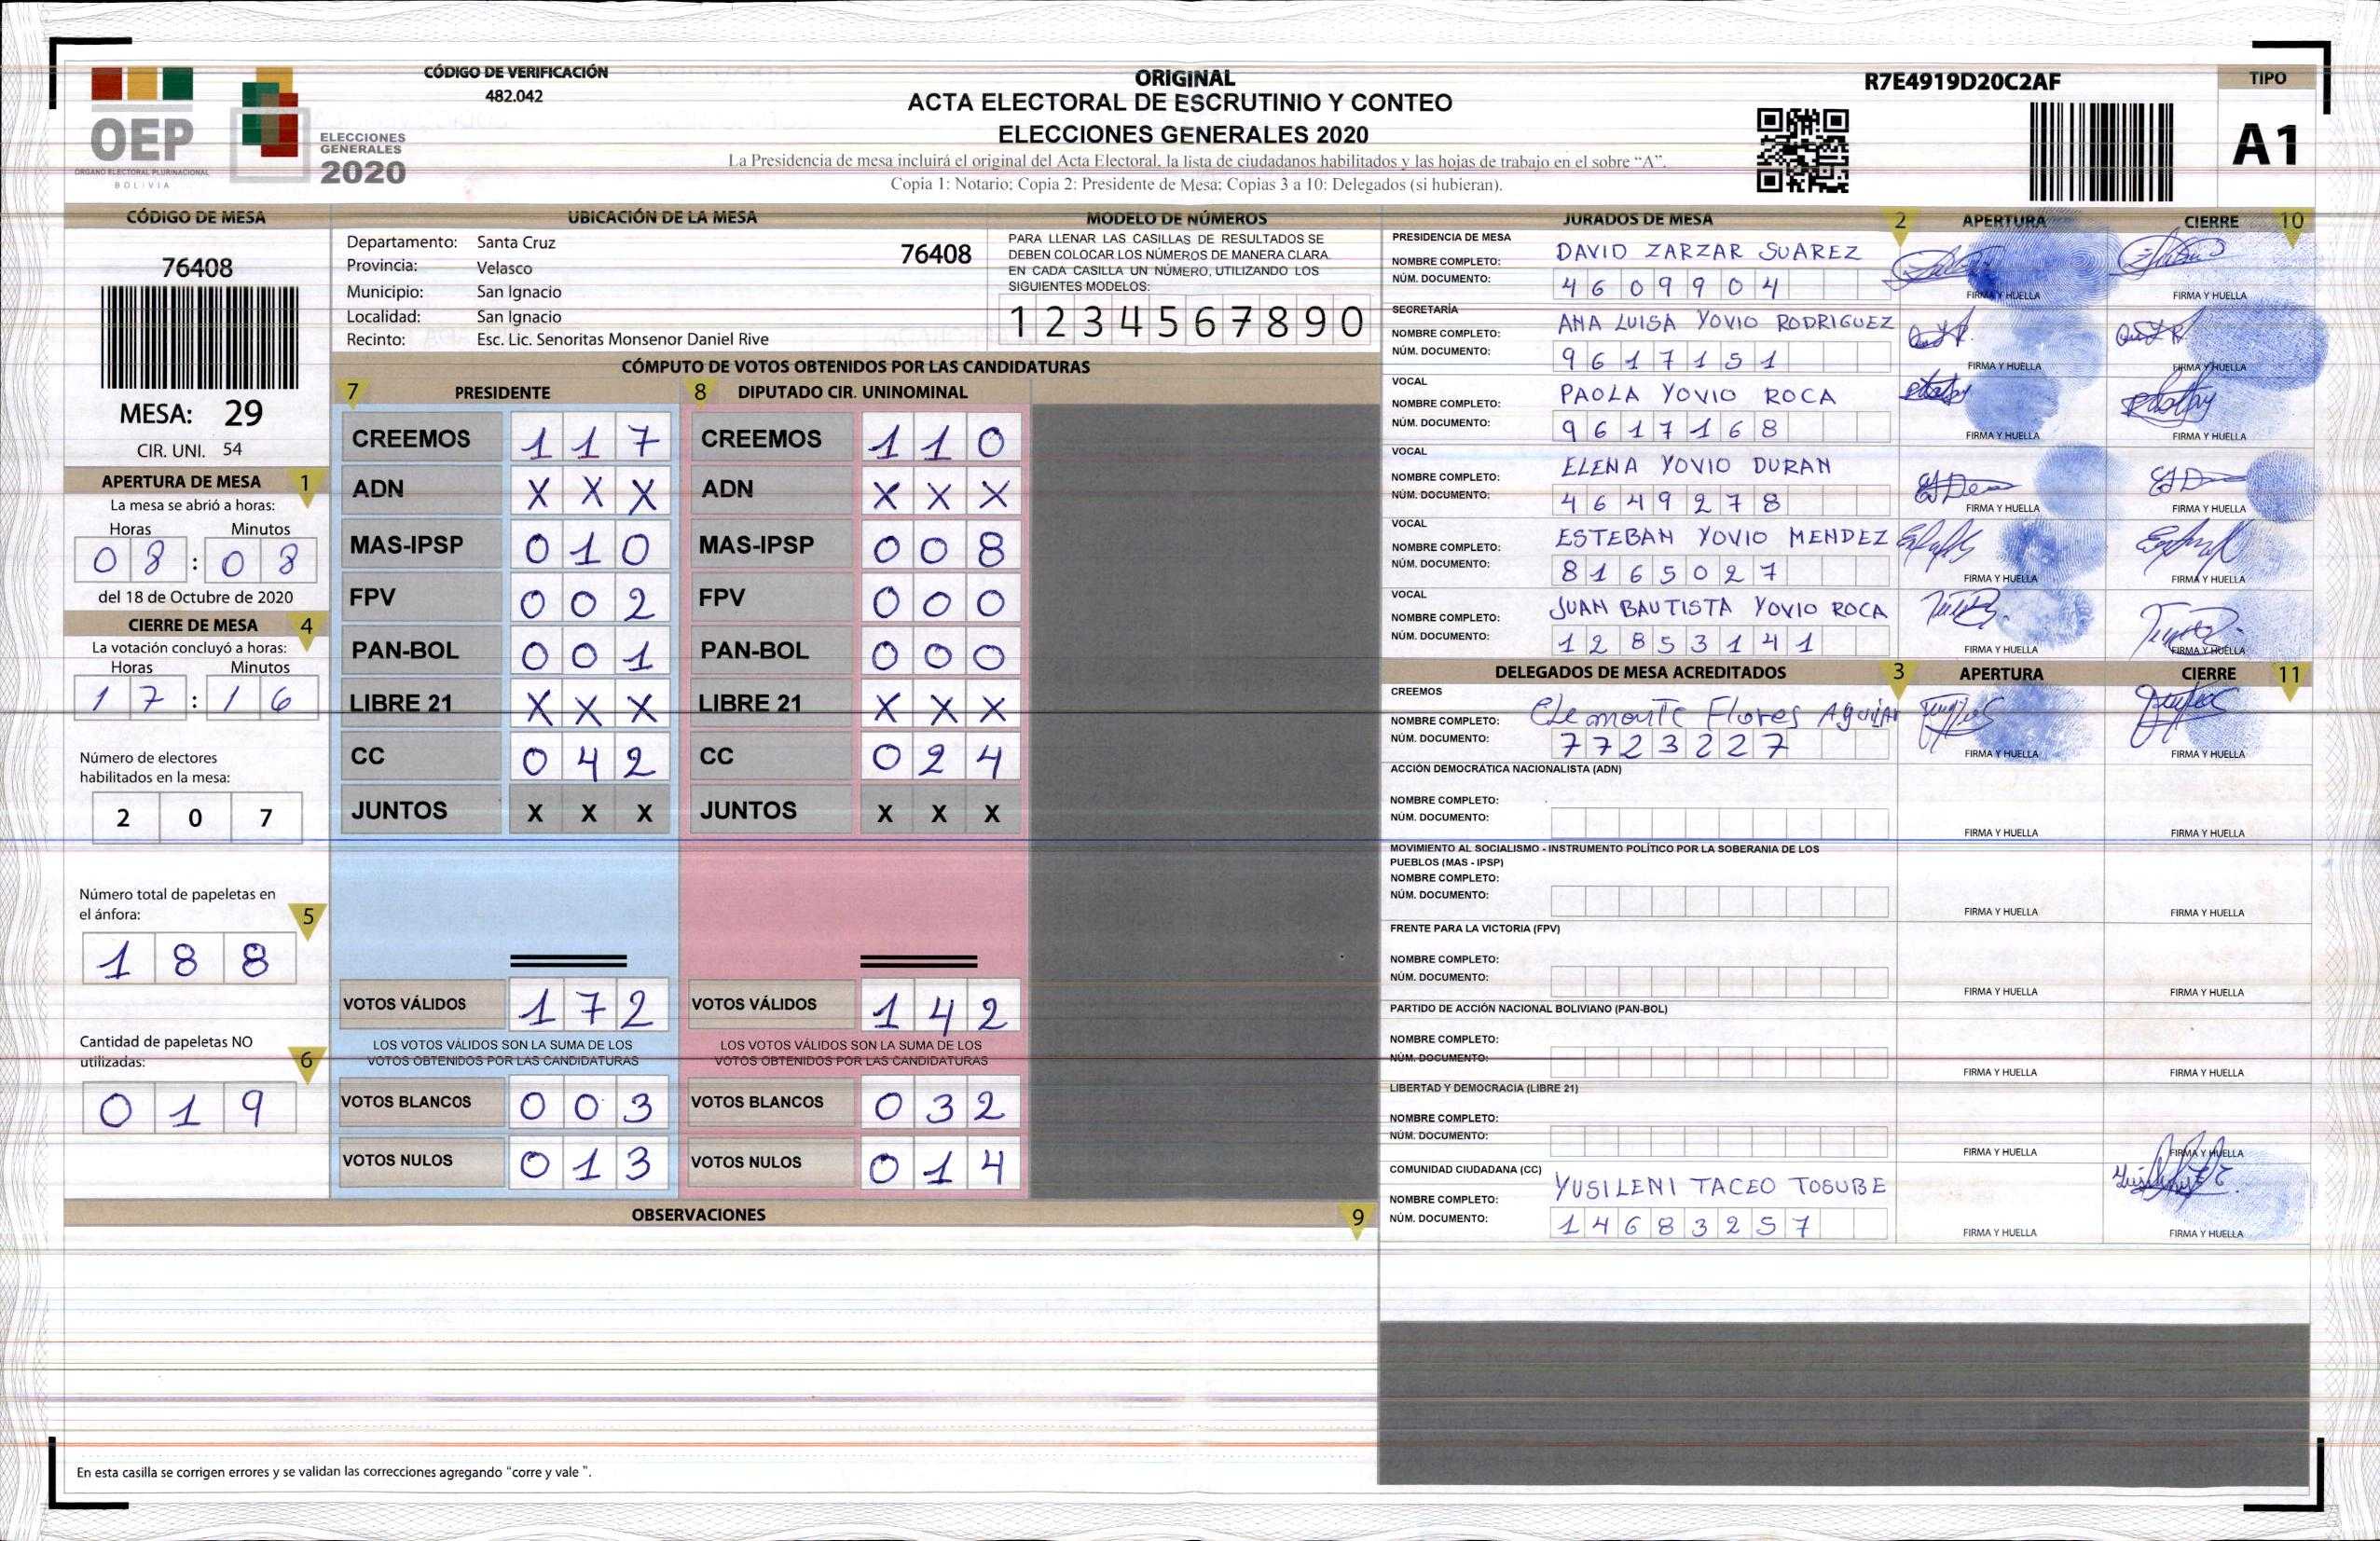 OEP
ÓRGANO ELECTORAL PLURINACIONAL
BOLIVIA
ELECCIONES
GENERALES
2020
CÓDIGO DE VERIFICACIÓN
482.042
ORIGINAL
ACTA ELECTORAL DE ESCRUTINIO Y CONTEO
ELECCIONES GENERALES 2020
La Presidencia de mesa incluirá el original del Acta Electoral, la lista de ciudadanos habilitados y las hojas de trabajo en el sobre “A”.
Copia 1: Notario; Copia 2: Presidente de Mesa; Copias 3 a 10: Delegados (si hubieran).
R7E4919D20C2AF
TIPO
A1
CÓDIGO DE MESA
76408
MESA: 29
CIR. UNI. 54
APERTURA DE MESA 1
La mesa se abrió a horas:
Horas Minutos
0 8 : 0 8
del 18 de Octubre de 2020
CIERRE DE MESA 4
La votación concluyó a horas:
Horas Minutos
1 7 : 1 6
Número de electores
habilitados en la mesa:
2 0 7
Número total de papeletas en
el ánfora: 5
1 8 8
Cantidad de papeletas NO
utilizadas: 6
0 1 9
UBICACIÓN DE LA MESA
Departamento: Santa Cruz 76408
Provincia: Velasco
Municipio: San Ignacio
Localidad: San Ignacio
Recinto: Esc. Lic. Senoritas Monsenor Daniel Rive
MODELO DE NÚMEROS
PARA LLENAR LAS CASILLAS DE RESULTADOS SE
DEBEN COLOCAR LOS NÚMEROS DE MANERA CLARA.
EN CADA CASILLA UN NÚMERO, UTILIZANDO LOS
SIGUIENTES MODELOS:
1 2 3 4 5 6 7 8 9 0
CÓMPUTO DE VOTOS OBTENIDOS POR LAS CANDIDATURAS
7 PRESIDENTE 8 DIPUTADO CIR. UNINOMINAL
CREEMOS 1 1 7 CREEMOS 1 1 0
ADN X X X ADN X X X
MAS-IPSP 0 1 0 MAS-IPSP 0 0 8
FPV 0 0 2 FPV 0 0 0
PAN-BOL 0 0 1 PAN-BOL 0 0 0
LIBRE 21 X X X LIBRE 21 X X X
CC 0 4 2 CC 0 2 4
JUNTOS X X X JUNTOS X X X
VOTOS VÁLIDOS 1 7 2 VOTOS VÁLIDOS 1 4 2
LOS VOTOS VÁLIDOS SON LA SUMA DE LOS LOS VOTOS VÁLIDOS SON LA SUMA DE LOS
VOTOS OBTENIDOS POR LAS CANDIDATURAS VOTOS OBTENIDOS POR LAS CANDIDATURAS
VOTOS BLANCOS 0 0 3 VOTOS BLANCOS 0 3 2
VOTOS NULOS 0 1 3 VOTOS NULOS 0 1 4
OBSERVACIONES 9
En esta casilla se corrigen errores y se validan las correcciones agregando “corre y vale ”.
JURADOS DE MESA 2 APERTURA CIERRE 10
PRESIDENCIA DE MESA
NOMBRE COMPLETO: DAVID ZARZAR SUAREZ
NÚM. DOCUMENTO: 4 6 0 9 9 0 4
FIRMA Y HUELLA FIRMA Y HUELLA
SECRETARÍA
NOMBRE COMPLETO: ANA LUISA YOVIO RODRIGUEZ
NÚM. DOCUMENTO: 9 6 1 7 1 5 1
FIRMA Y HUELLA FIRMA Y HUELLA
VOCAL
NOMBRE COMPLETO: PAOLA YOVIO ROCA
NÚM. DOCUMENTO: 9 6 1 7 1 6 8
FIRMA Y HUELLA FIRMA Y HUELLA
VOCAL
NOMBRE COMPLETO: ELENA YOVIO DURAN
NÚM. DOCUMENTO: 4 6 4 9 2 7 8
FIRMA Y HUELLA FIRMA Y HUELLA
VOCAL
NOMBRE COMPLETO: ESTEBAN YOVIO MENDEZ
NÚM. DOCUMENTO: 8 1 6 5 0 2 7
FIRMA Y HUELLA FIRMA Y HUELLA
VOCAL
NOMBRE COMPLETO: JUAN BAUTISTA YOVIO ROCA
NÚM. DOCUMENTO: 1 2 8 5 3 1 4 1
FIRMA Y HUELLA FIRMA Y HUELLA
DELEGADOS DE MESA ACREDITADOS 3 APERTURA CIERRE 11
CREEMOS
NOMBRE COMPLETO: Clemente Flores Aguilar
NÚM. DOCUMENTO: 7 7 2 3 2 2 7
FIRMA Y HUELLA FIRMA Y HUELLA
ACCIÓN DEMOCRÁTICA NACIONALISTA (ADN)
NOMBRE COMPLETO:
NÚM. DOCUMENTO:
FIRMA Y HUELLA FIRMA Y HUELLA
MOVIMIENTO AL SOCIALISMO - INSTRUMENTO POLÍTICO POR LA SOBERANIA DE LOS
PUEBLOS (MAS - IPSP)
NOMBRE COMPLETO:
NÚM. DOCUMENTO:
FIRMA Y HUELLA FIRMA Y HUELLA
FRENTE PARA LA VICTORIA (FPV)
NOMBRE COMPLETO:
NÚM. DOCUMENTO:
FIRMA Y HUELLA FIRMA Y HUELLA
PARTIDO DE ACCIÓN NACIONAL BOLIVIANO (PAN-BOL)
NOMBRE COMPLETO:
NÚM. DOCUMENTO:
FIRMA Y HUELLA FIRMA Y HUELLA
LIBERTAD Y DEMOCRACIA (LIBRE 21)
NOMBRE COMPLETO:
NÚM. DOCUMENTO:
FIRMA Y HUELLA FIRMA Y HUELLA
COMUNIDAD CIUDADANA (CC)
NOMBRE COMPLETO: YUSILENI TACEO TOSUBE
NÚM. DOCUMENTO: 1 4 6 8 3 2 5 7
FIRMA Y HUELLA FIRMA Y HUELLA